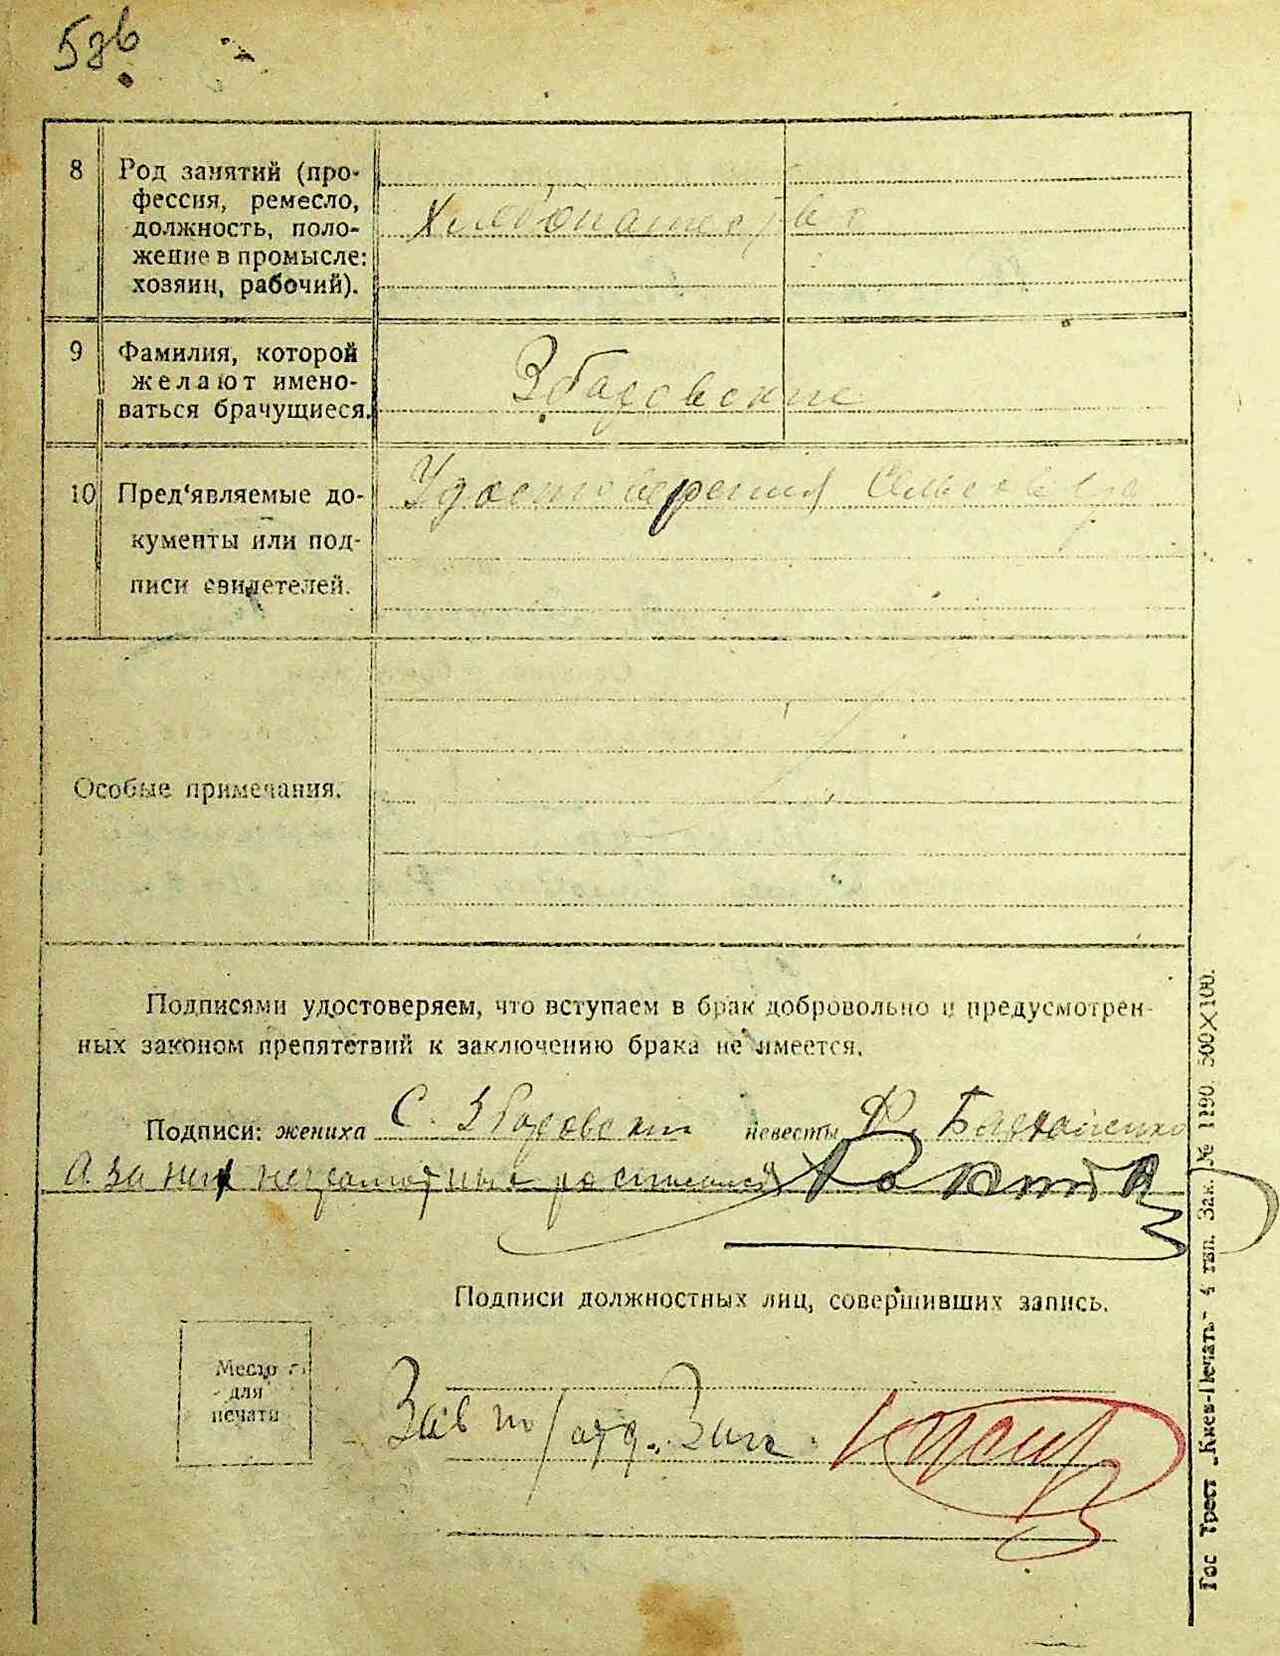 58б
8 Род занятий (про-
фессия, ремесло,
должность, поло-
жение в промысле:
хозяин, рабочий).
Хлебопашество
9 Фамилия, которой
желают имено-
ваться брачущиеся.
Збаровские
10 Пред'являемые до-
кументы или под-
писи свидетелей.
Удостоверения Сельсовета
Особые примечания.
Подписями удостоверяем, что вступаем в брак добровольно и предусмотрен-
ных законом препятствий к заключению брака не имеется.
Подписи: жениха С. Збаровский невесты Ф.
А за них неграмотных расписался
Подписи должностных лиц, совершивших запись.
Место
для
печати
Зав
Гос Трест „Киев-Печать" 4 тип. Зак. № 1190. 500×100.